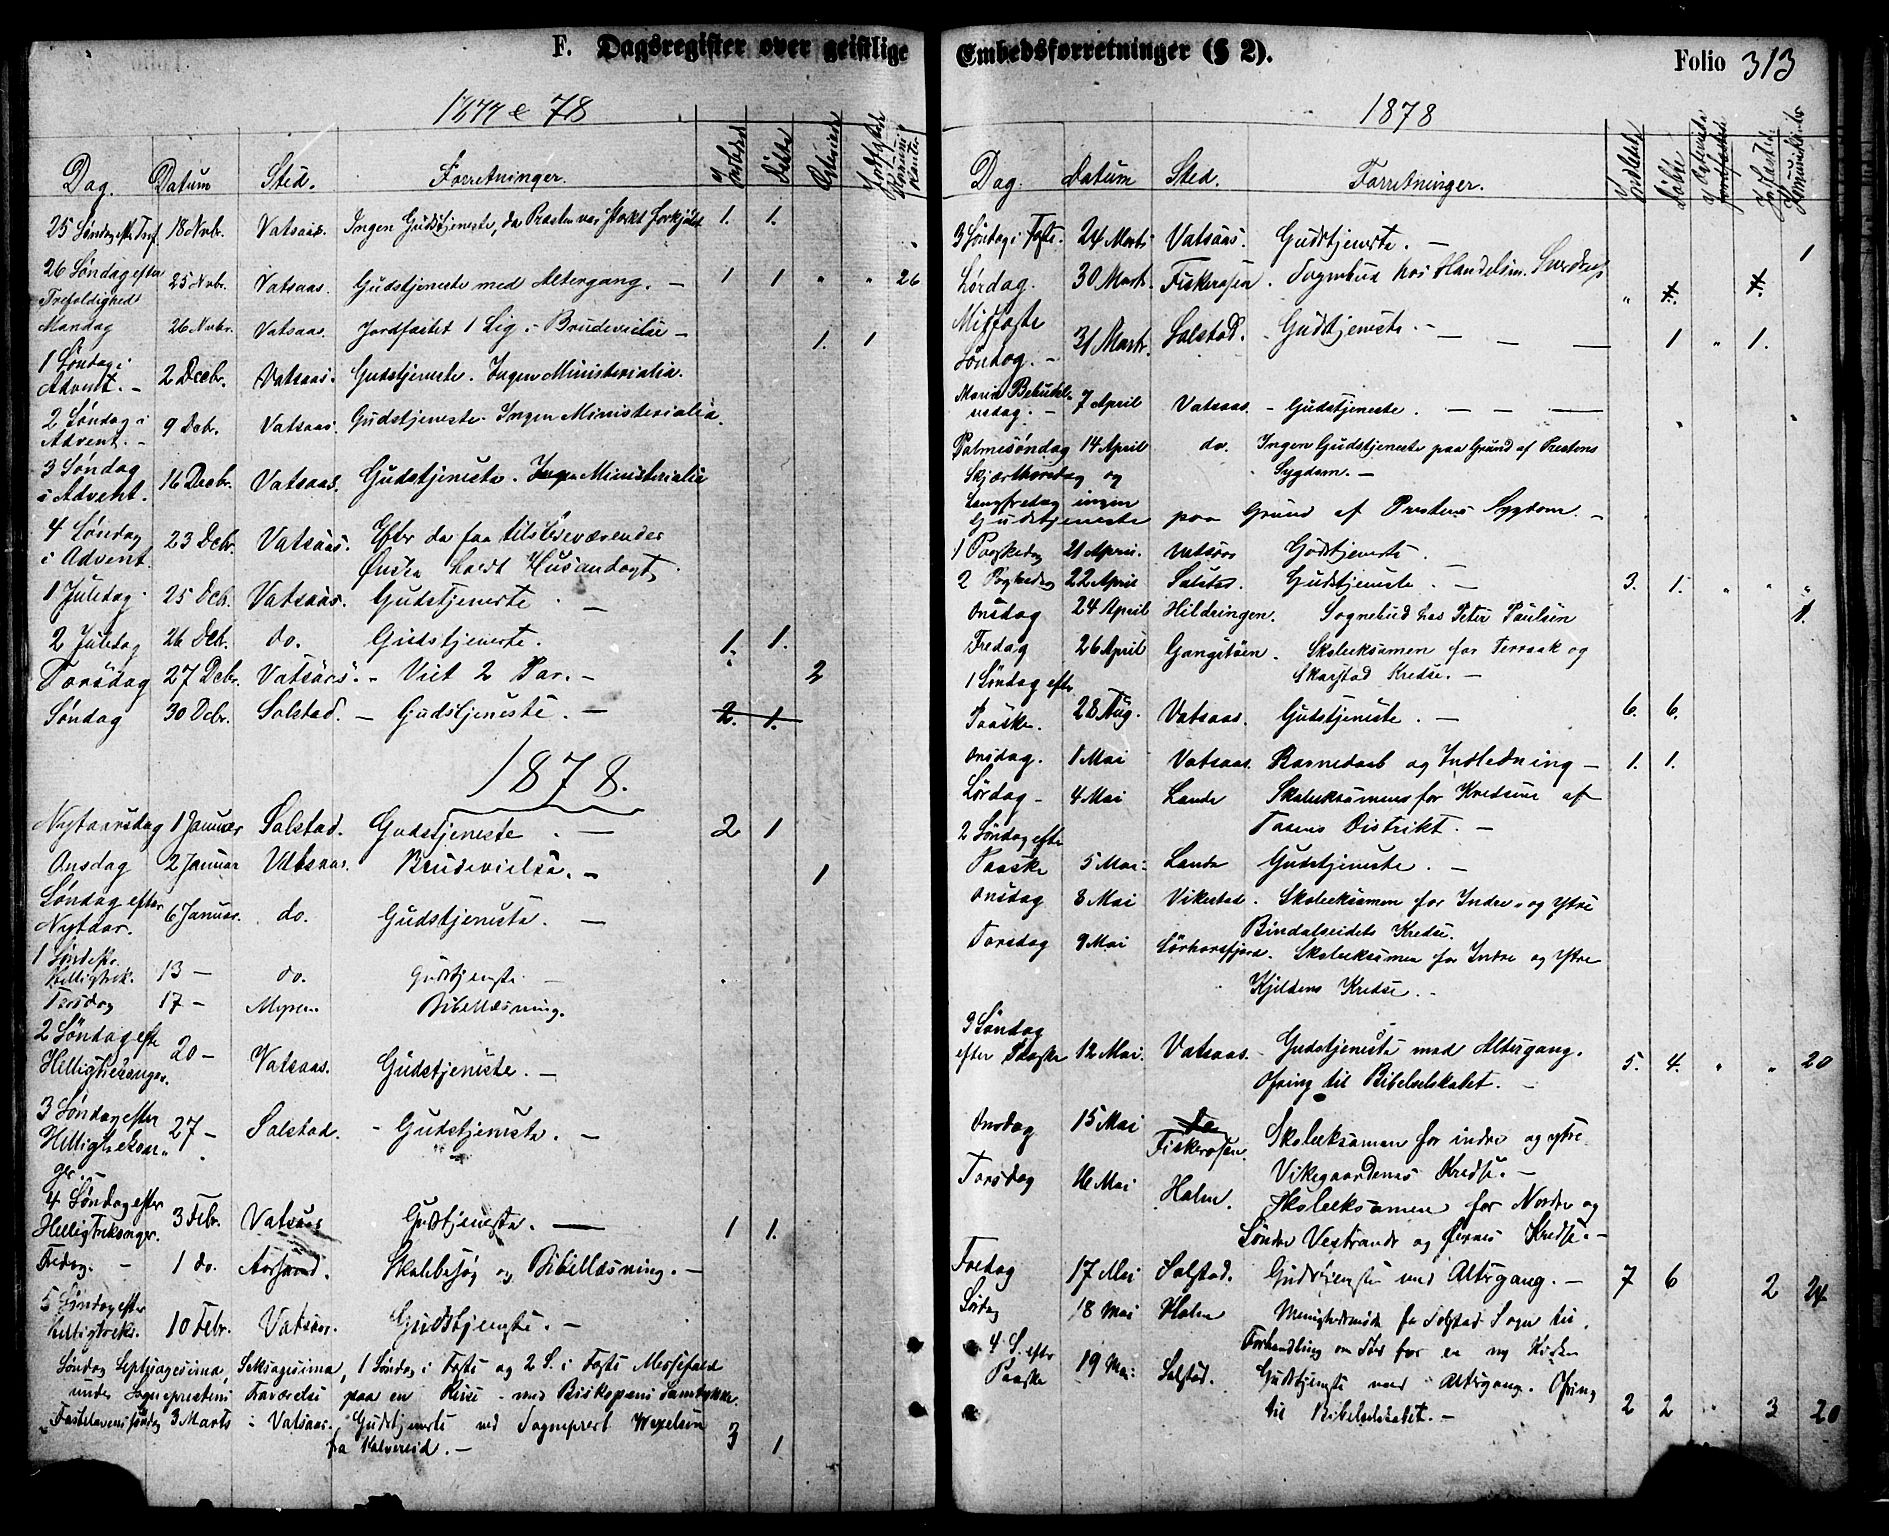 F. Dagsregister over geistlige Embedsforretninger (§ 2). Folio 313
1877 & 78
Dag. Datum Sted. Forretninger. Indledte Døbte Jordfæstet Kommunikanter
25 Søndag eft. Tref. 18 Nvbr. Vatsaas. Ingen Gudstjeneste, da Præsten var stærkt forkjølet 1. 1.
26 Søndag efter
Trefoldighed 25 Nvbr. Vatsaas. Gudstjeneste med Altergang. – 1 1 " " 26
Mandag 26 Nvbr. Vatsaas. Jordfæstet 1 Lig. – Brudevielse – 1. 1
1 Søndag i
Advent. – 2 Decbr. Vatsaas. Gudstjeneste. Ingen Ministerialia.
2 Søndag i
Advent. – 9 Dcbr. Vatsaas. Gudstjeneste. Ingen Ministerialia.
3 Søndag
i Advent. 16 Decbr. Vatsaas. Gudstjeneste. Ingen Ministerialia
4 Søndag
i Advent. 23 Dcbr. Vatsaas. Efter de faa tilstedeværendes
Ønske holdt Husandagt.
1 Juledag. 25 Dcb. Vatsaas. Gudstjeneste. –
2 Juledag 26 Dcb. do. Gudstjeneste. 1. 1.
Torsdag 27 Dcbr. Vatsaas. – Viet 2 Par. – 2
Søndag 30 Dcbr. Solstad. – Gudstjeneste. – 2. 1.
1878.
Nytaarsdag 1 Januar Solstad. Gudstjeneste. – 2 1
Onsdag 2 Januar Vatsaas. Brudevielse. – 1
Søndag efter
Nytaar. 6 Januar. do. Gudstjeneste. –
1 Sønd. efter
Helligtrek. 13 – do. Gudstjeneste –
Torsdag 17 – Myren. Bibellæsning.
2 Søndag efte
Helligtrekonger. 20 – Vatsaas. Gudstjeneste. –
3 Søndag efter
Helligtrekon-
ger. – 27 – Solstad. – Gudstjeneste. –
4 Søndag efter
Helligtrekonger. 3 Febr. Vatsaas Gudstjeneste. – 1 1.
Fredag. – 1 do. Aarsand. Skolebesøg og Bibellæsning. –
5 Søndag efter
Helligtrek. 10 Febr. Vatsaas. Gudstjeneste. –
Søndag Septuagesima, Seksagesima, 1 Søndag i Faste og 2 S. i Faste Messefald
under Sognepræstens Fraværelse paa en Reise – med Biskopens Samtykke.
Fastelavenssøndag 3 Marts i Vatsaas. Gudstjeneste ved Sogneprest Wexelsen
fra Kolvereid. – 3 1
1878
Dag. Datum Sted. Forretninger. Indledte Døbte Jordfæstede Kommunikanter
3 Søndag i Faste. 24 Marts Vatsaas. Gudstjeneste. –
Lørdag. 30 Marts. Fiskerosen. Sognebud hos Handelsm. Sverdrup 1
Midfaste
Søndag. – 31 Marts. Solstad. – Gudstjeneste. – 1 " 1.
Mariæ Bebudel-
sesdag. – 7 April Vatsaas – Gudstjeneste. –
Palmesøndag 14 April do. Ingen Gudstjeneste paa Grund af Prestens
Sygdom. –
Skjærthorsdag og
Langfredag ingen
Gudstjeneste paa Grund af Prestens Sygdom. –
1 Paaskedag 21 April. Vatsaas Gudstjeneste.
2 Paaskedag 22 April Solstad. Gudstjeneste. – 3. 1. " " "
Onsdag 24 April Hildringen. Sognebud hos Peter Paulsen 1.
Fredag 26 April Gangstøen. Skoleeksamen for Terraak og
Skarstad Kredse. –
1 Søndag efter
Paaske. 28 Aug. Vatsaas. Gudstjeneste. – 6. 6.
Onsdag. 1 Mai Vatsaas. Barnedaab og Indledning – 1. 1.
Lørdag – 4 Mai Lande Skoleeksamens for Kredsene af
Tosens Distrikt. –
2 Søndag efte
Paaske 5 Mai. Lande Gudstjeneste. –
Onsdag 8 Mai Vikestad. Skoleeksamen for Indre- og Ytre
Bindalseidets Kredse.
Torsdag 9 Mai Sørhorsfjord. Skoleeksamen for Indre og Ytre
Kjeldens Kredse. –
3 Søndag
efter Paaske 12 Mai. Vatsaas. – Gudstjeneste med Altergang.
Ofring til Bibelselskabet. – 5. 4. " " 20
Onsdag 15 Mai Fiskerosen. Skoleeksamen for indre og ytre
Vikegaardenes Kredse. –
Torsdag 16 Mai Holm. Skoleeksamen for Nordre og
Søndre Vestrande og Øernes Kredse. –
Fredag 17 Mai Solstad. Gudstjeneste med Altergang. – 7 6 2 24
Lørdag 18 Mai Holm Menighedsmøde for Solstad Sogn til
Forhandling om Sted for en ny Kirke
4 S. efter
Paaske 19 Mai Solstad. Gudstjeneste med Altergang. Ofring
til Bibelselskabet. – 2 2 " 3 20